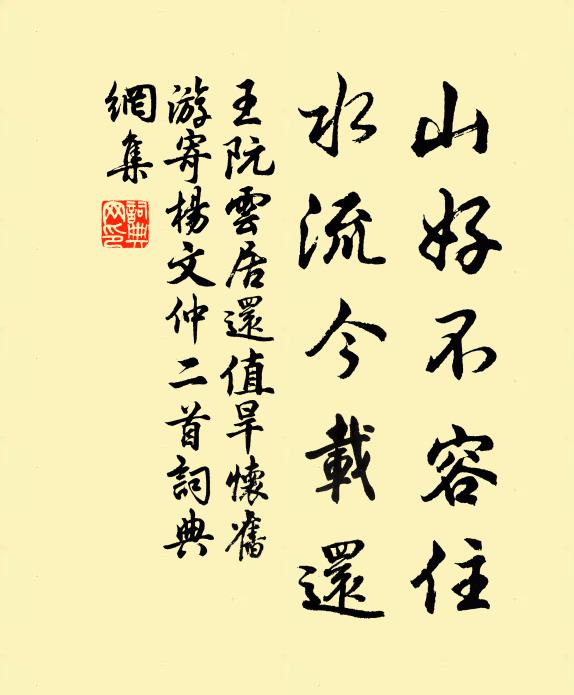 山好不容住
水流今載還
王阮雲居還值旱懷舊
游寄楊文仲二首詞典
網集
詞典
网印